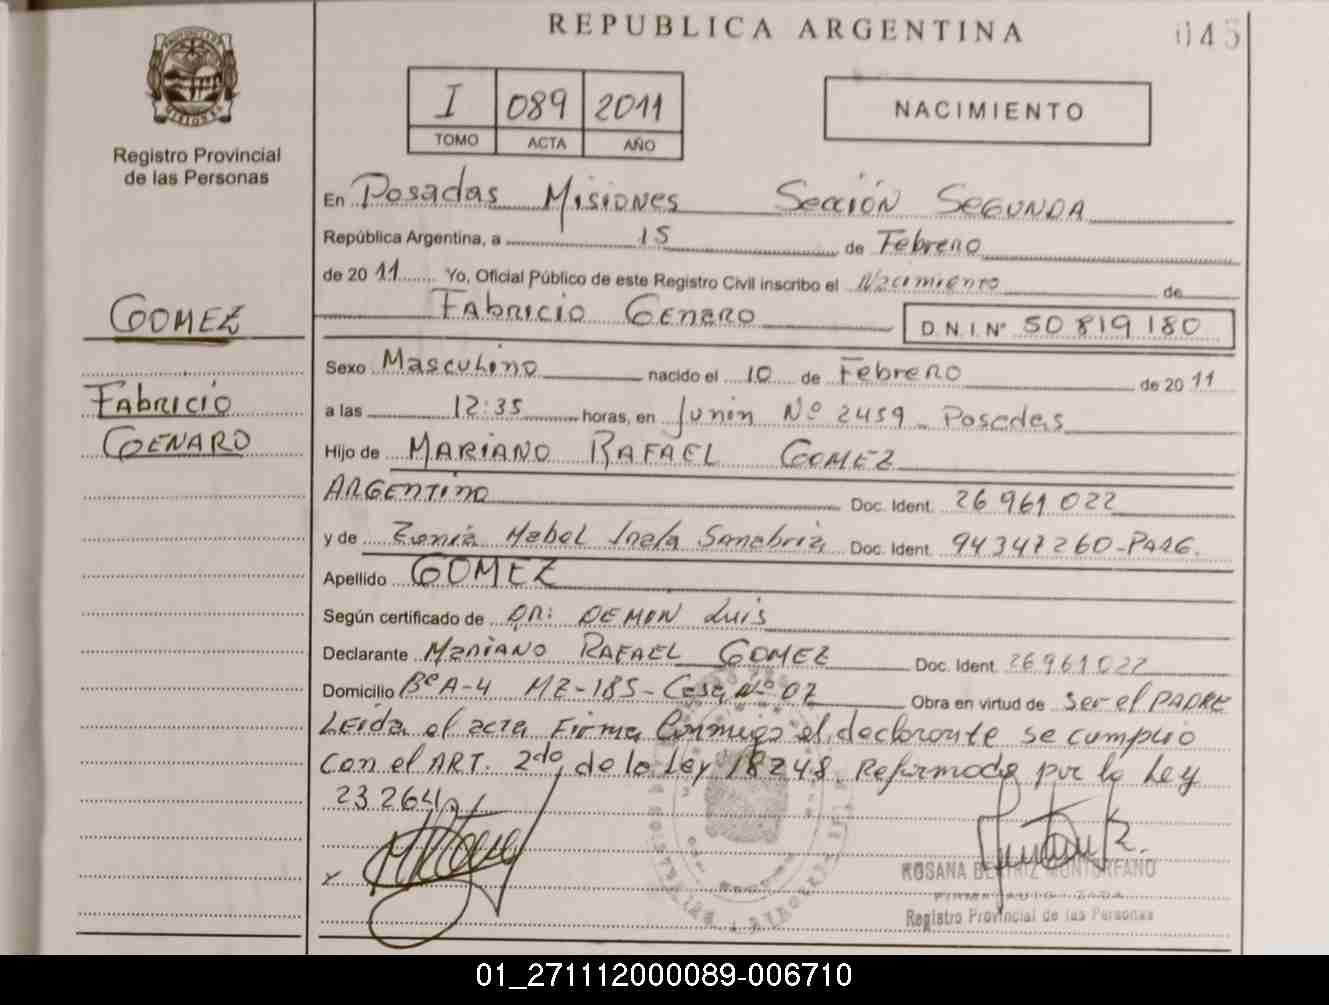 REPUBLICA ARGENTINA
045
PROVINCIA DE
MISIONES
Registro Provincial
de las Personas
I 089 2011
TOMO ACTA AÑO
NACIMIENTO
En Posadas Misiones Sección Segunda
República Argentina, a 15 de Febrero
de 2011 Yo, Oficial Público de este Registro Civil inscribo el Nacimiento de
Fabricio Genaro D.N.I. Nº 50 819 180
GOMEZ
Fabricio
GENARO
Sexo Masculino nacido el 10 de Febrero de 2011
a las 12:35 horas, en Junin Nº 2459 Posadas
Hijo de MARIANO RAFAEL GOMEZ
ARGENTINO Doc. Ident. 26 961 022
y de Mabel Sanabria Doc. Ident. 94 347 260-PARG.
Apellido GOMEZ
Según certificado de DR: DEMON Luis
Declarante MARIANO RAFAEL GOMEZ Doc. Ident. 26 961 022
Domicilio Bº A-4 MZ-185-Casa Nº 02 Obra en virtud de Ser el PADRE
Leida el acta Firma Conmigo el declarante se cumplio
con el ART. 2do, de la Ley 18248. Reformada por la Ley
23.264
ROSANA BEATRIZ MONTORFANO
FIRMA AUTORIZADA
Registro Provincial de las Personas
01_271112000089-006710